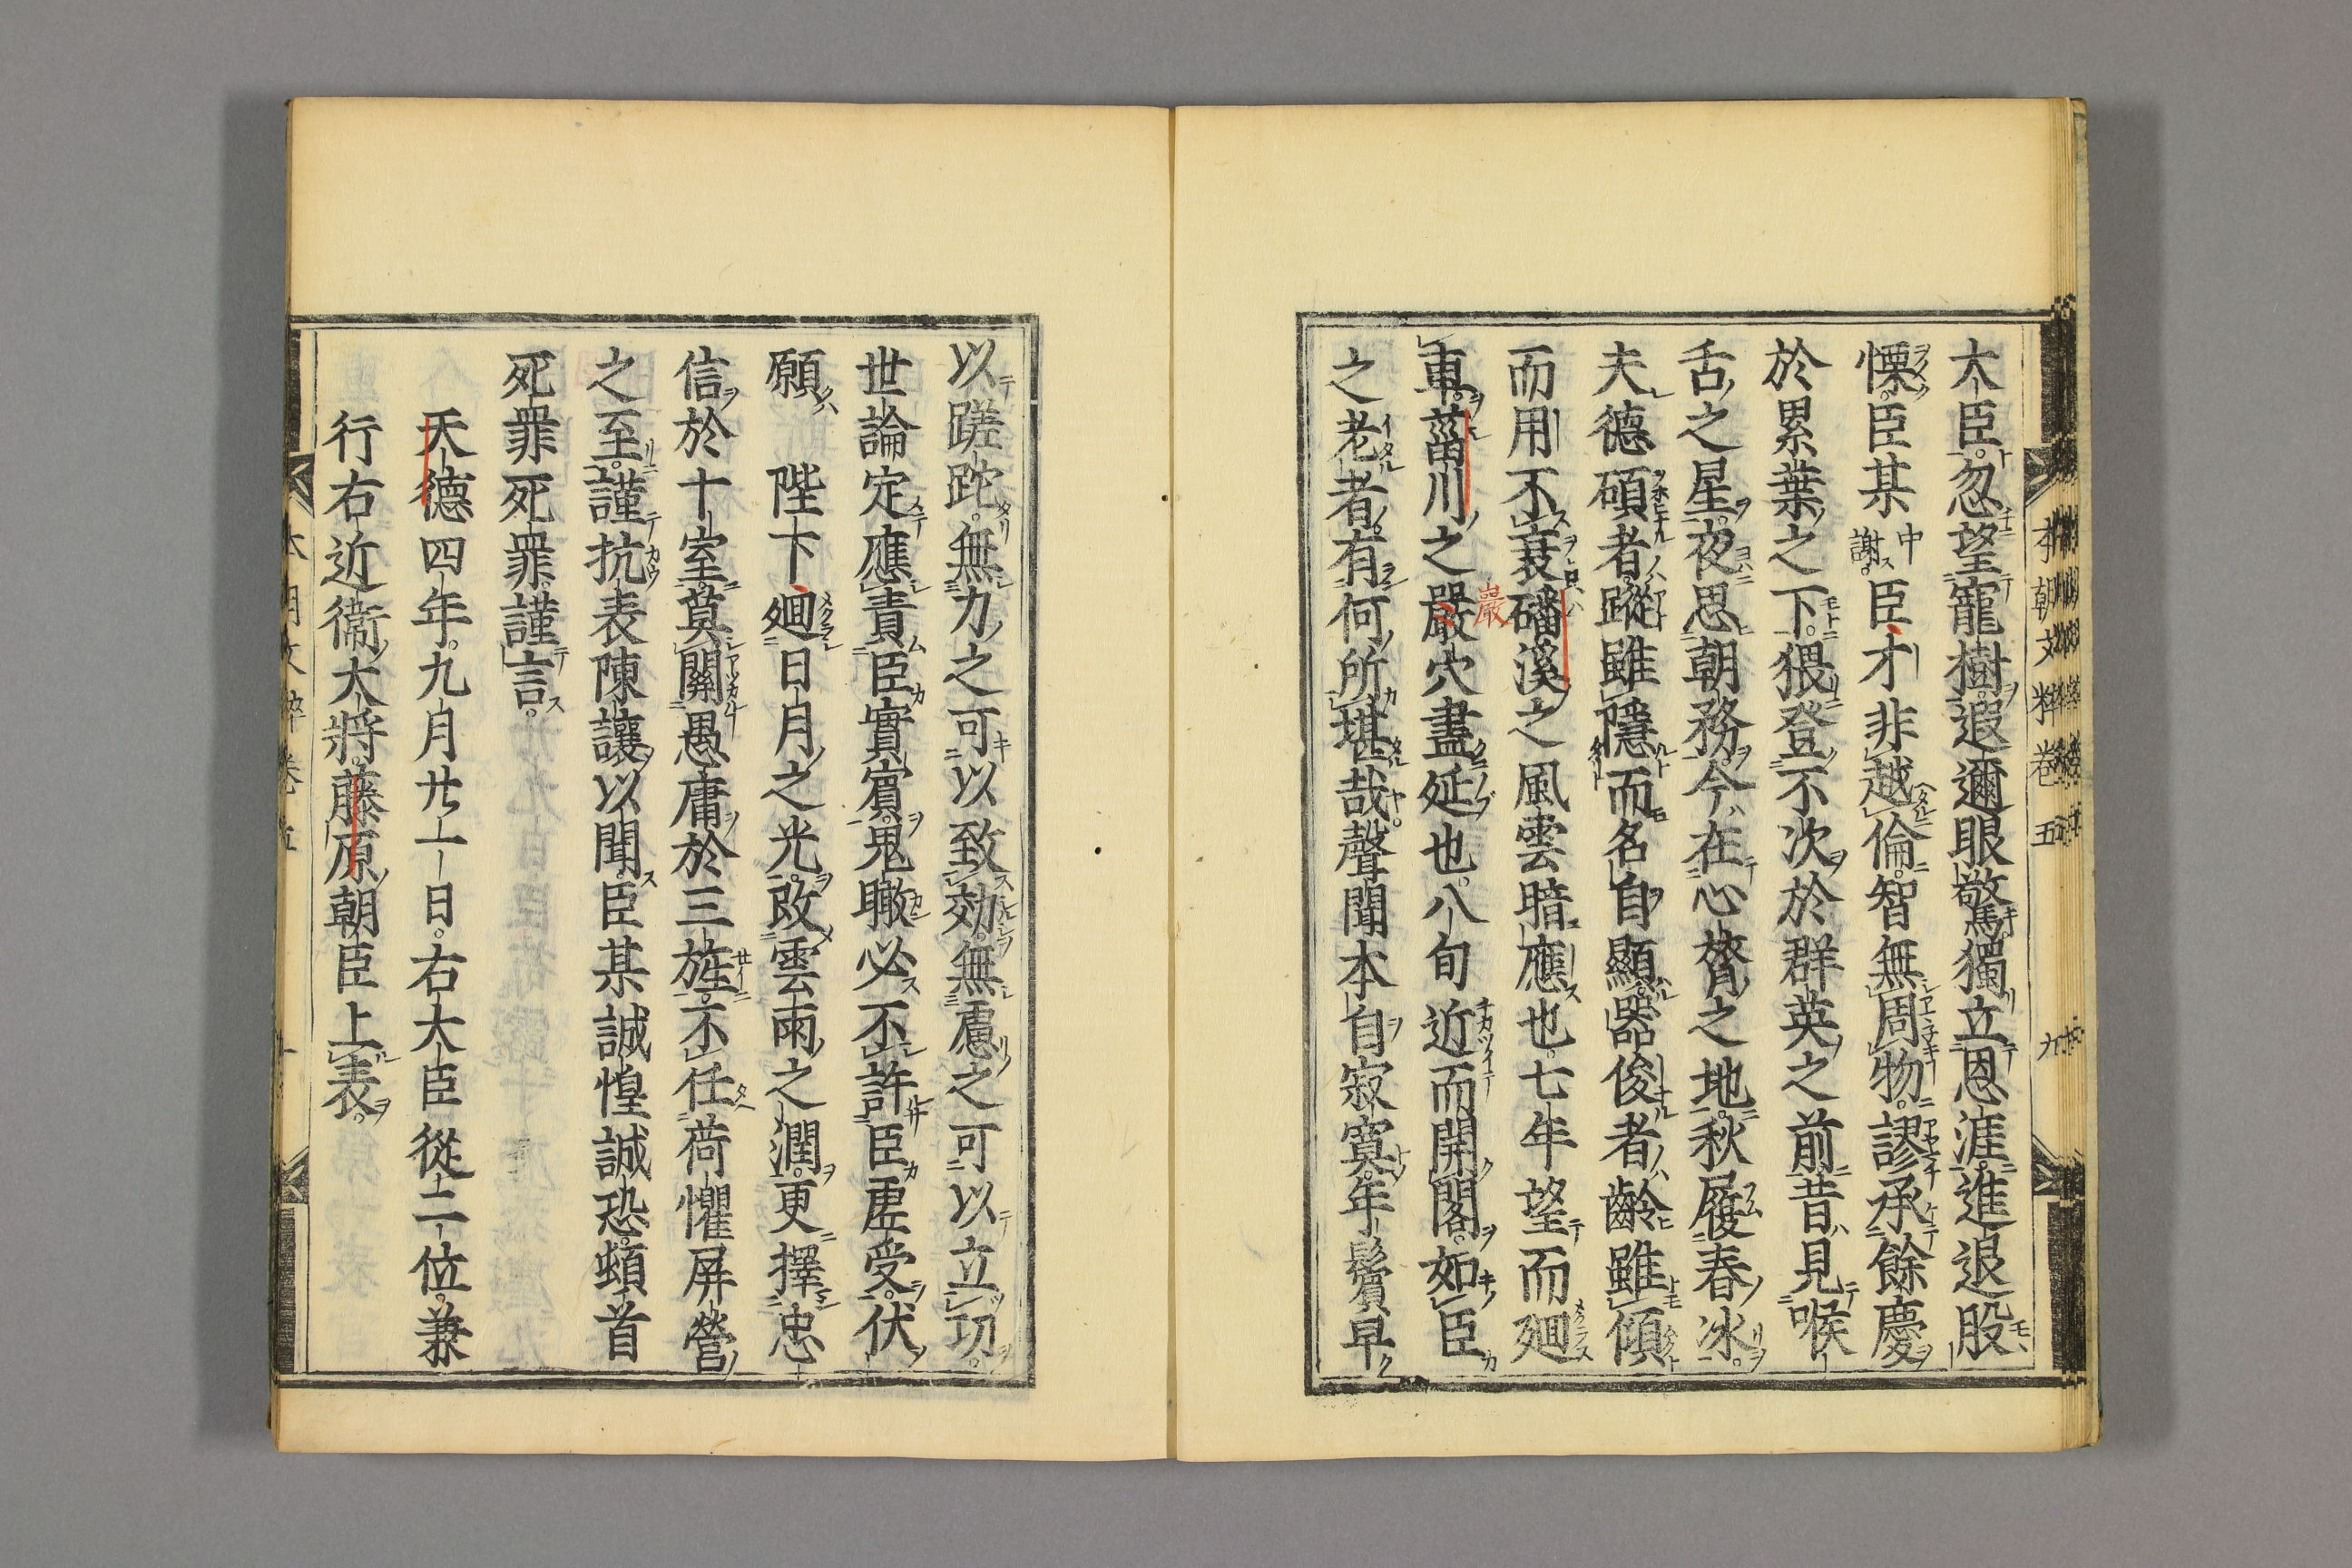 大臣。忽望寵樹。遐邇眼驚。獨立恩涯。進退股
慄。臣某中謝。臣才非越倫。智無周物。謬承餘慶
於累葉之下。猥登不次於群英之前。昔見喉
舌之星。夜思朝務。今在心膂之地。秋履春冰。
夫德碩者。蹤雖隱而名自顯。器俊者。齡雖傾
而用不衰。磻溪之風雲暗應也。七年望而廻
車。菑川之嚴穴盡延也。八旬近而開閣。如臣
巖
之老者。有何所堪哉。聲聞本自寂寞。年鬢早
以蹉跎。無力之可以致効。無慮之可以立功。
世論定應責臣實賓。鬼瞰必不許臣虛受。伏
願陛下。廻日月之光。改雲雨之潤。更擇忠
信於十室。莫關愚庸於三旌。不任荷懼屏營
之至。謹抗表陳讓以聞。臣某誠惶誠恐。頓首
死罪死罪。謹言。
天德四年。九月廿一日。右大臣從二位。兼
行右近衞大將。藤原朝臣上表。
本朝文粹卷五 九